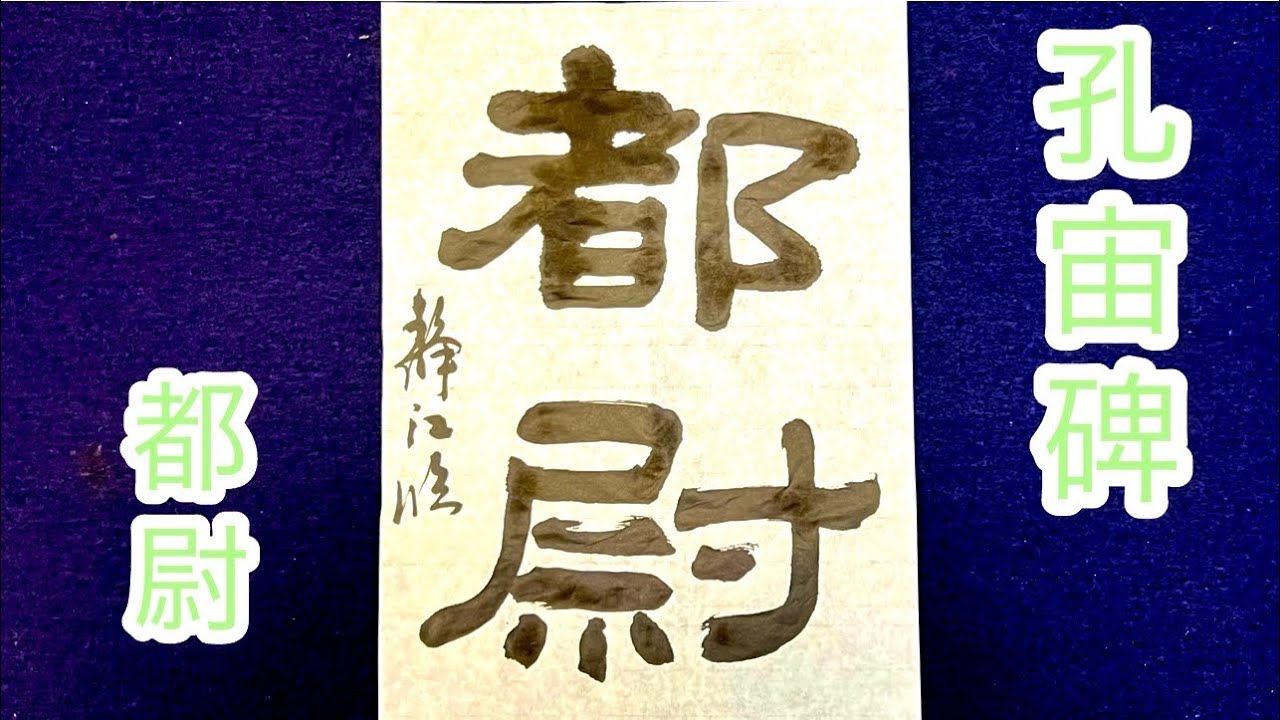 孔宙碑
都尉
静江临
都尉